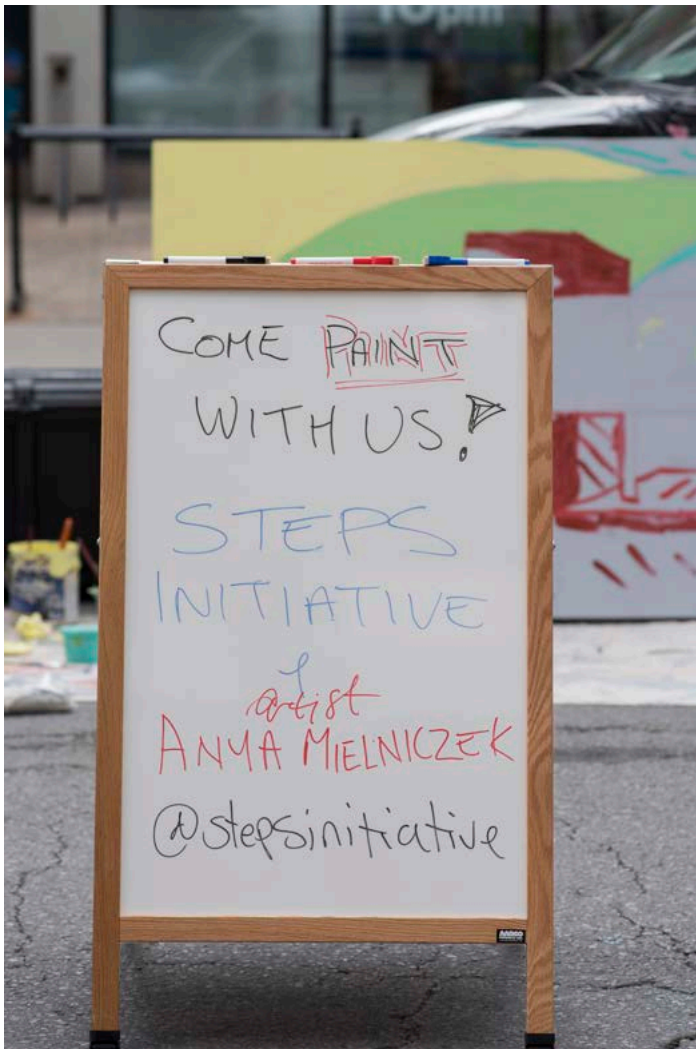 10pm
COME PAINT
WITH US!
STEPS
INITIATIVE
&
artist
ANYA MIELNICZEK
@stepsinitiative